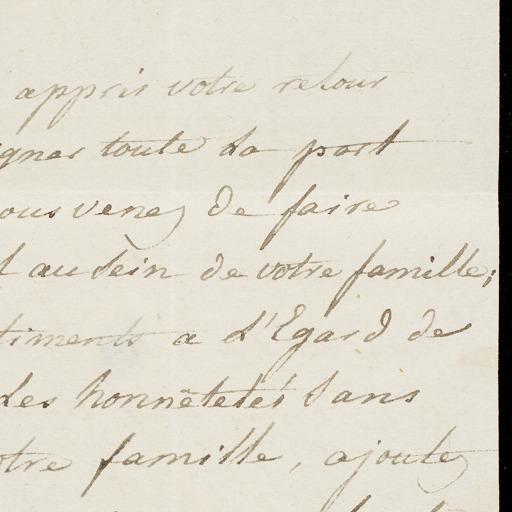 appris votre retour
igner toute la part
ous venez de faire
t au sein de votre famille;
timents a l'Egard de
les honnêtetés sans
otre famille, ajoutez